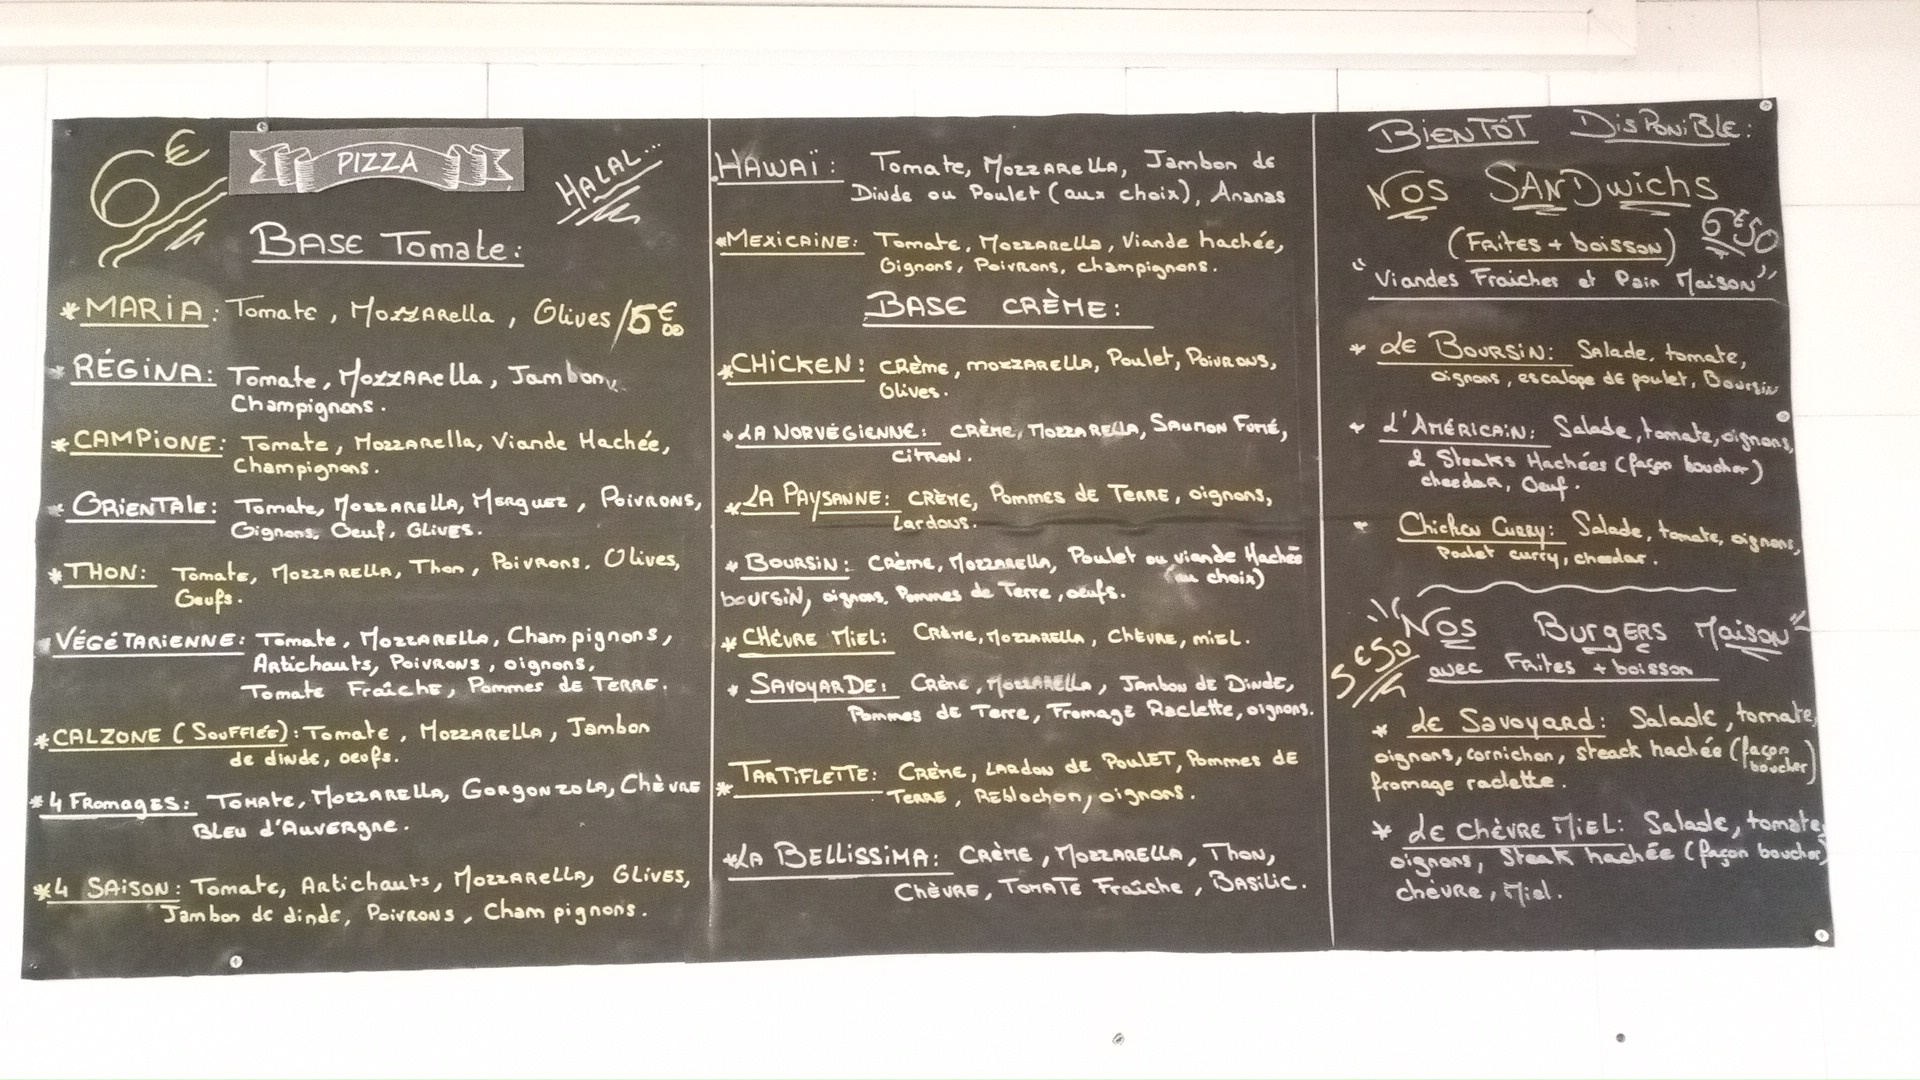 6€
PIZZA
HALAL...
BASE Tomate:
* MARIA: Tomate, Mozzarella, Olives / 5€00
* RÉGINA: Tomate, Mozzarella, Jambon,
Champignons.
* CAMPIONE: Tomate, Mozzarella, Viande Hachée,
Champignons.
* ORIENTALE: Tomate, Mozzarella, Merguez, Poivrons,
Oignons, Oeuf, Olives.
* THON: Tomate, Mozzarella, Thon, Poivrons, Olives,
Oeufs.
* VÉGÉTARIENNE: Tomate, Mozzarella, Champignons,
Artichauts, Poivrons, oignons,
Tomate Fraîche, Pommes de Terre.
* CALZONE (Soufflée): Tomate, Mozzarella, Jambon
de dinde, oeufs.
* 4 FROMAGES: Tomate, Mozzarella, Gorgonzola, Chèvre
Bleu d'Auvergne.
* 4 SAISON: Tomate, Artichauts, Mozzarella, Olives,
Jambon de dinde, Poivrons, Champignons.
HAWAÏ: Tomate, Mozzarella, Jambon de
Dinde ou Poulet (aux choix), Ananas
* MEXICAINE: Tomate, Mozzarella, Viande hachée,
Oignons, Poivrons, champignons.
BASE CRÈME:
* CHICKEN: CRÈME, mozzarella, Poulet, Poivrons,
Olives.
* LA NORVÉGIENNE: CRÈME, Mozzarella, Saumon Fumé,
Citron.
* LA PAYSANNE: CRÈME, Pommes de Terre, oignons,
Lardons.
* BOURSIN: Crème, Mozzarella, Poulet ou viande Hachée
(au choix)
boursin, oignons, Pommes de Terre, oeufs.
* CHÈVRE MIEL: Crème, Mozzarella, Chèvre, miel.
* SAVOYARDE: Crème, Mozzarella, Jambon de Dinde,
Pommes de Terre, Fromage Raclette, oignons.
* TARTIFLETTE: Crème, Lardon de Poulet, Pommes de
Terre, Reblochon, oignons.
* LA BELLISSIMA: Crème, Mozzarella, Thon,
Chèvre, Tomate Fraîche, Basilic.
BIENTÔT DISPONIBLE:
NOS SANDwichs
6€50
(Frites + boisson)
"Viandes Fraiches et Pain Maison"
* LE BOURSIN: Salade, tomate,
oignons, escalope de poulet, Boursin
* L'AMÉRICAIN: Salade, tomate, oignons,
2 Steaks Hachées (façon boucher)
cheedar, Oeuf.
- Chicken Curry: Salade, tomate, oignons,
Poulet curry, cheedar.
"Nos Burgers Maison"
5€50
avec Frites + boisson
* LE Savoyard: Salade, tomate,
oignons, cornichon, steack hachée (façon
boucher)
fromage raclette.
* LE CHÈVRE MIEL: Salade, tomate,
oignons, Steak hachée (façon boucher)
chèvre, Miel.